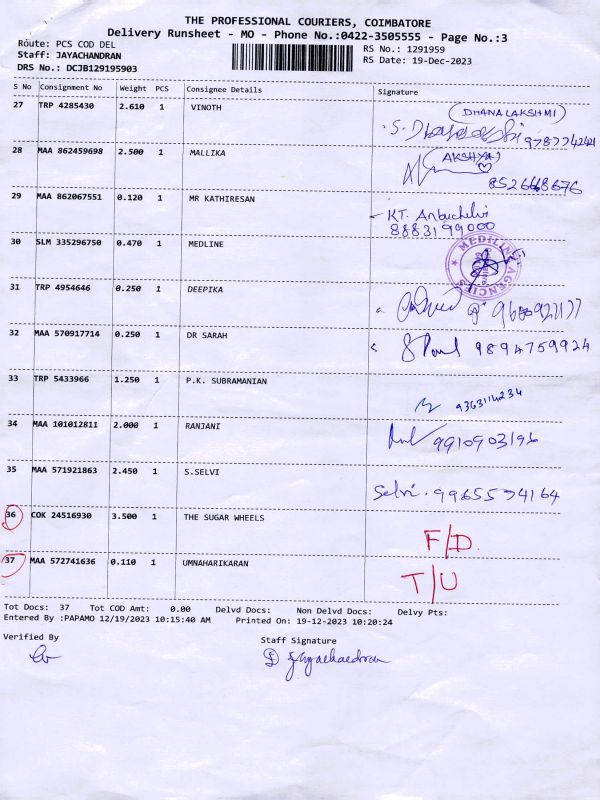 THE PROFESSIONAL COURIERS, COIMBATORE
Delivery Runsheet - MO - Phone No.:0422-3505555 - Page No.:3
Route: PCS COD DEL
RS No.: 1291959
Staff: JAYACHANDRAN
RS Date: 19-Dec-2023
DRS No.: DCJB129195903
S No Consignment No Weight PCS Consignee Details Signature
27 TRP 4285430 2.610 1 VINOTH
DHANALAKSHMI
28 MAA 862459698 2.500 1 MALLIKA
AKSHYA
29 MAA 862067551 0.120 1 MR KATHIRESAN
KT. Anbuchelvi
8883199000
30 SLM 335296750 0.470 1 MEDLINE
MEDILINE AGENCIES
31 TRP 4954646 0.250 1 DEEPIKA
32 MAA 570917714 0.250 1 DR SARAH
9894759924
33 TRP 5433966 1.250 1 P.K. SUBRAMANIAN
9363114234
34 MAA 101012811 2.000 1 RANJANI
9910903196
35 MAA 571921863 2.450 1 S.SELVI
Selvi. 9965534164
36 COK 24516930 3.500 1 THE SUGAR WHEELS
F/D.
37 MAA 572741636 0.110 1 UMNAHARIKARAN
T/U
Tot Docs: 37 Tot COD Amt: 0.00 Delvd Docs: Non Delvd Docs: Delvy Pts:
Entered By :PAPAMO 12/19/2023 10:15:40 AM Printed On: 19-12-2023 10:20:24
Verified By Staff Signature